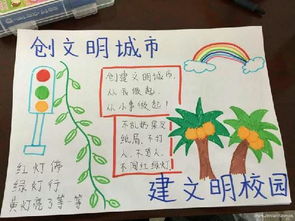 创文明城市
创建文明城市,
从我做起,
从小事做起!
不乱扔果皮
纸屑、不打
人、不骂人、
不闯红绿灯
红灯停
绿灯行
黄灯亮了等等
建文明校园